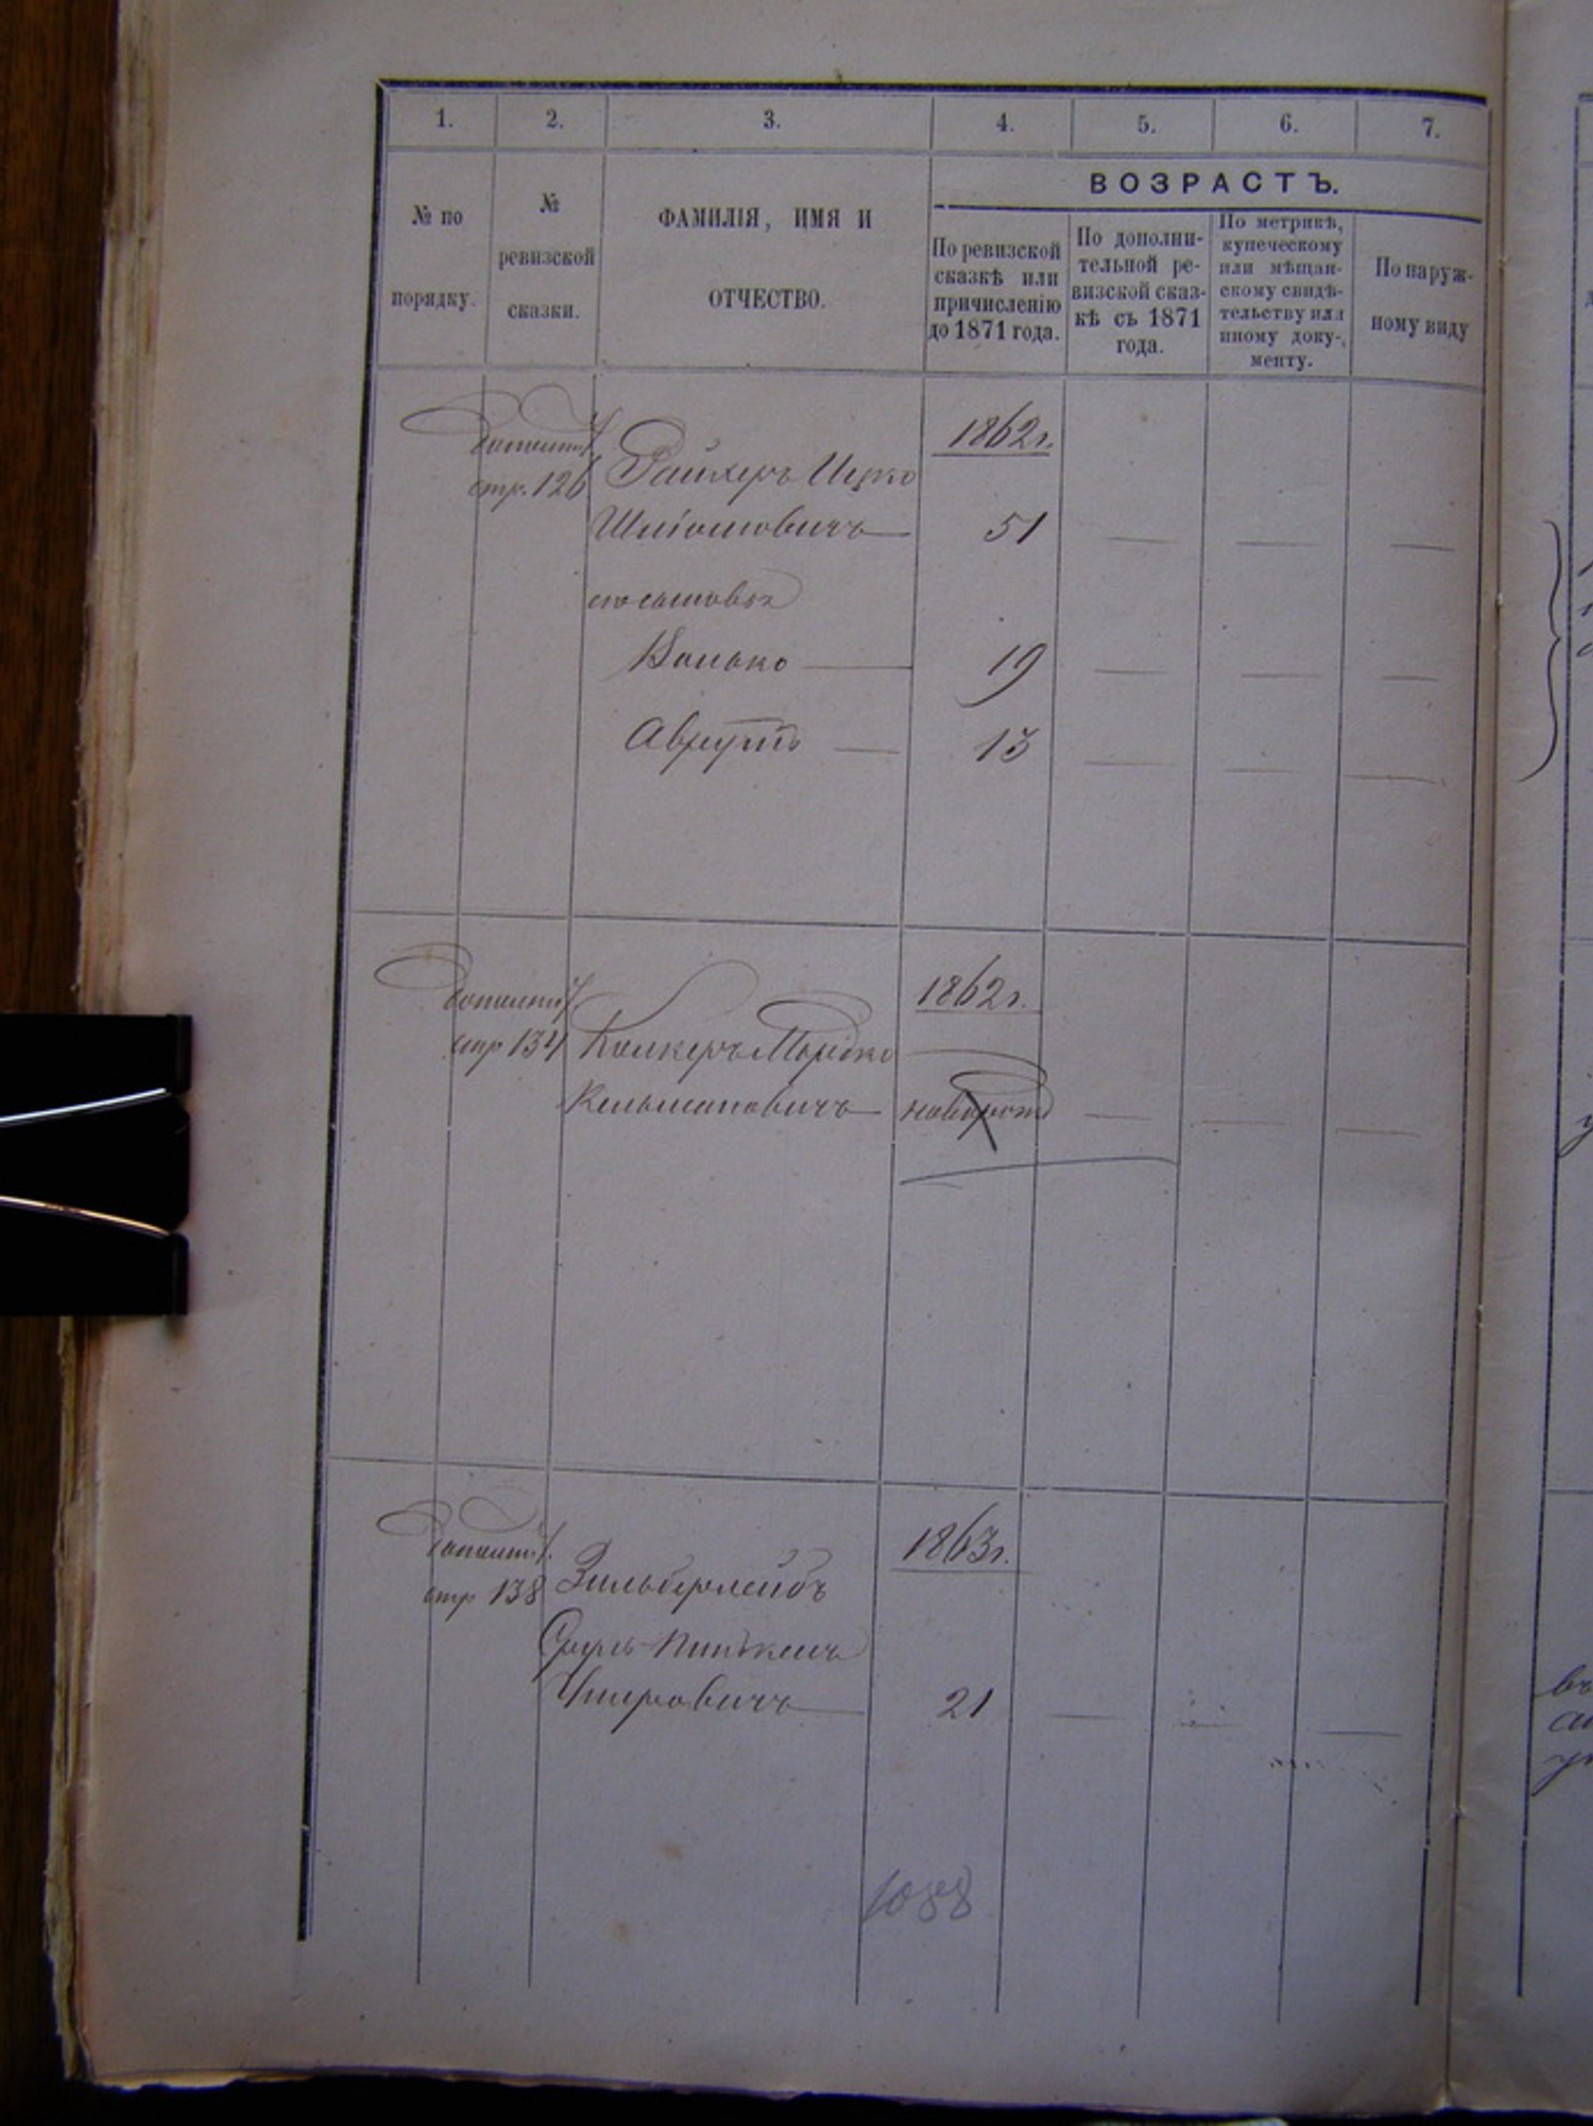 1. 2. 3. 4. 5. 6. 7.
№ по порядку.
№ ревизской сказки.
ФАМИЛІЯ, ИМЯ И
ОТЧЕСТВО.
ВОЗРАСТЪ.
По ревизской
сказкѣ или
причисленію
до 1871 года.
По дополни-
тельной ре-
визской сказ-
кѣ съ 1871
года.
По метрикѣ,
купеческому
или мѣщан-
скому свидѣ-
тельству или
иному доку-
менту.
По наруж-
ному виду
1862 г.
стр. 126 Райхеръ Ицко
Шліомовичъ 51
его сыновья
Волько 19
Аврумъ 13
1862 г.
стр 134 Колкеръ Мордко
Кельмановичъ новорожд
1863 г.
стр 138 Зильберлейбъ
Сруль-Пинькасъ
Умеровичъ 21
1088